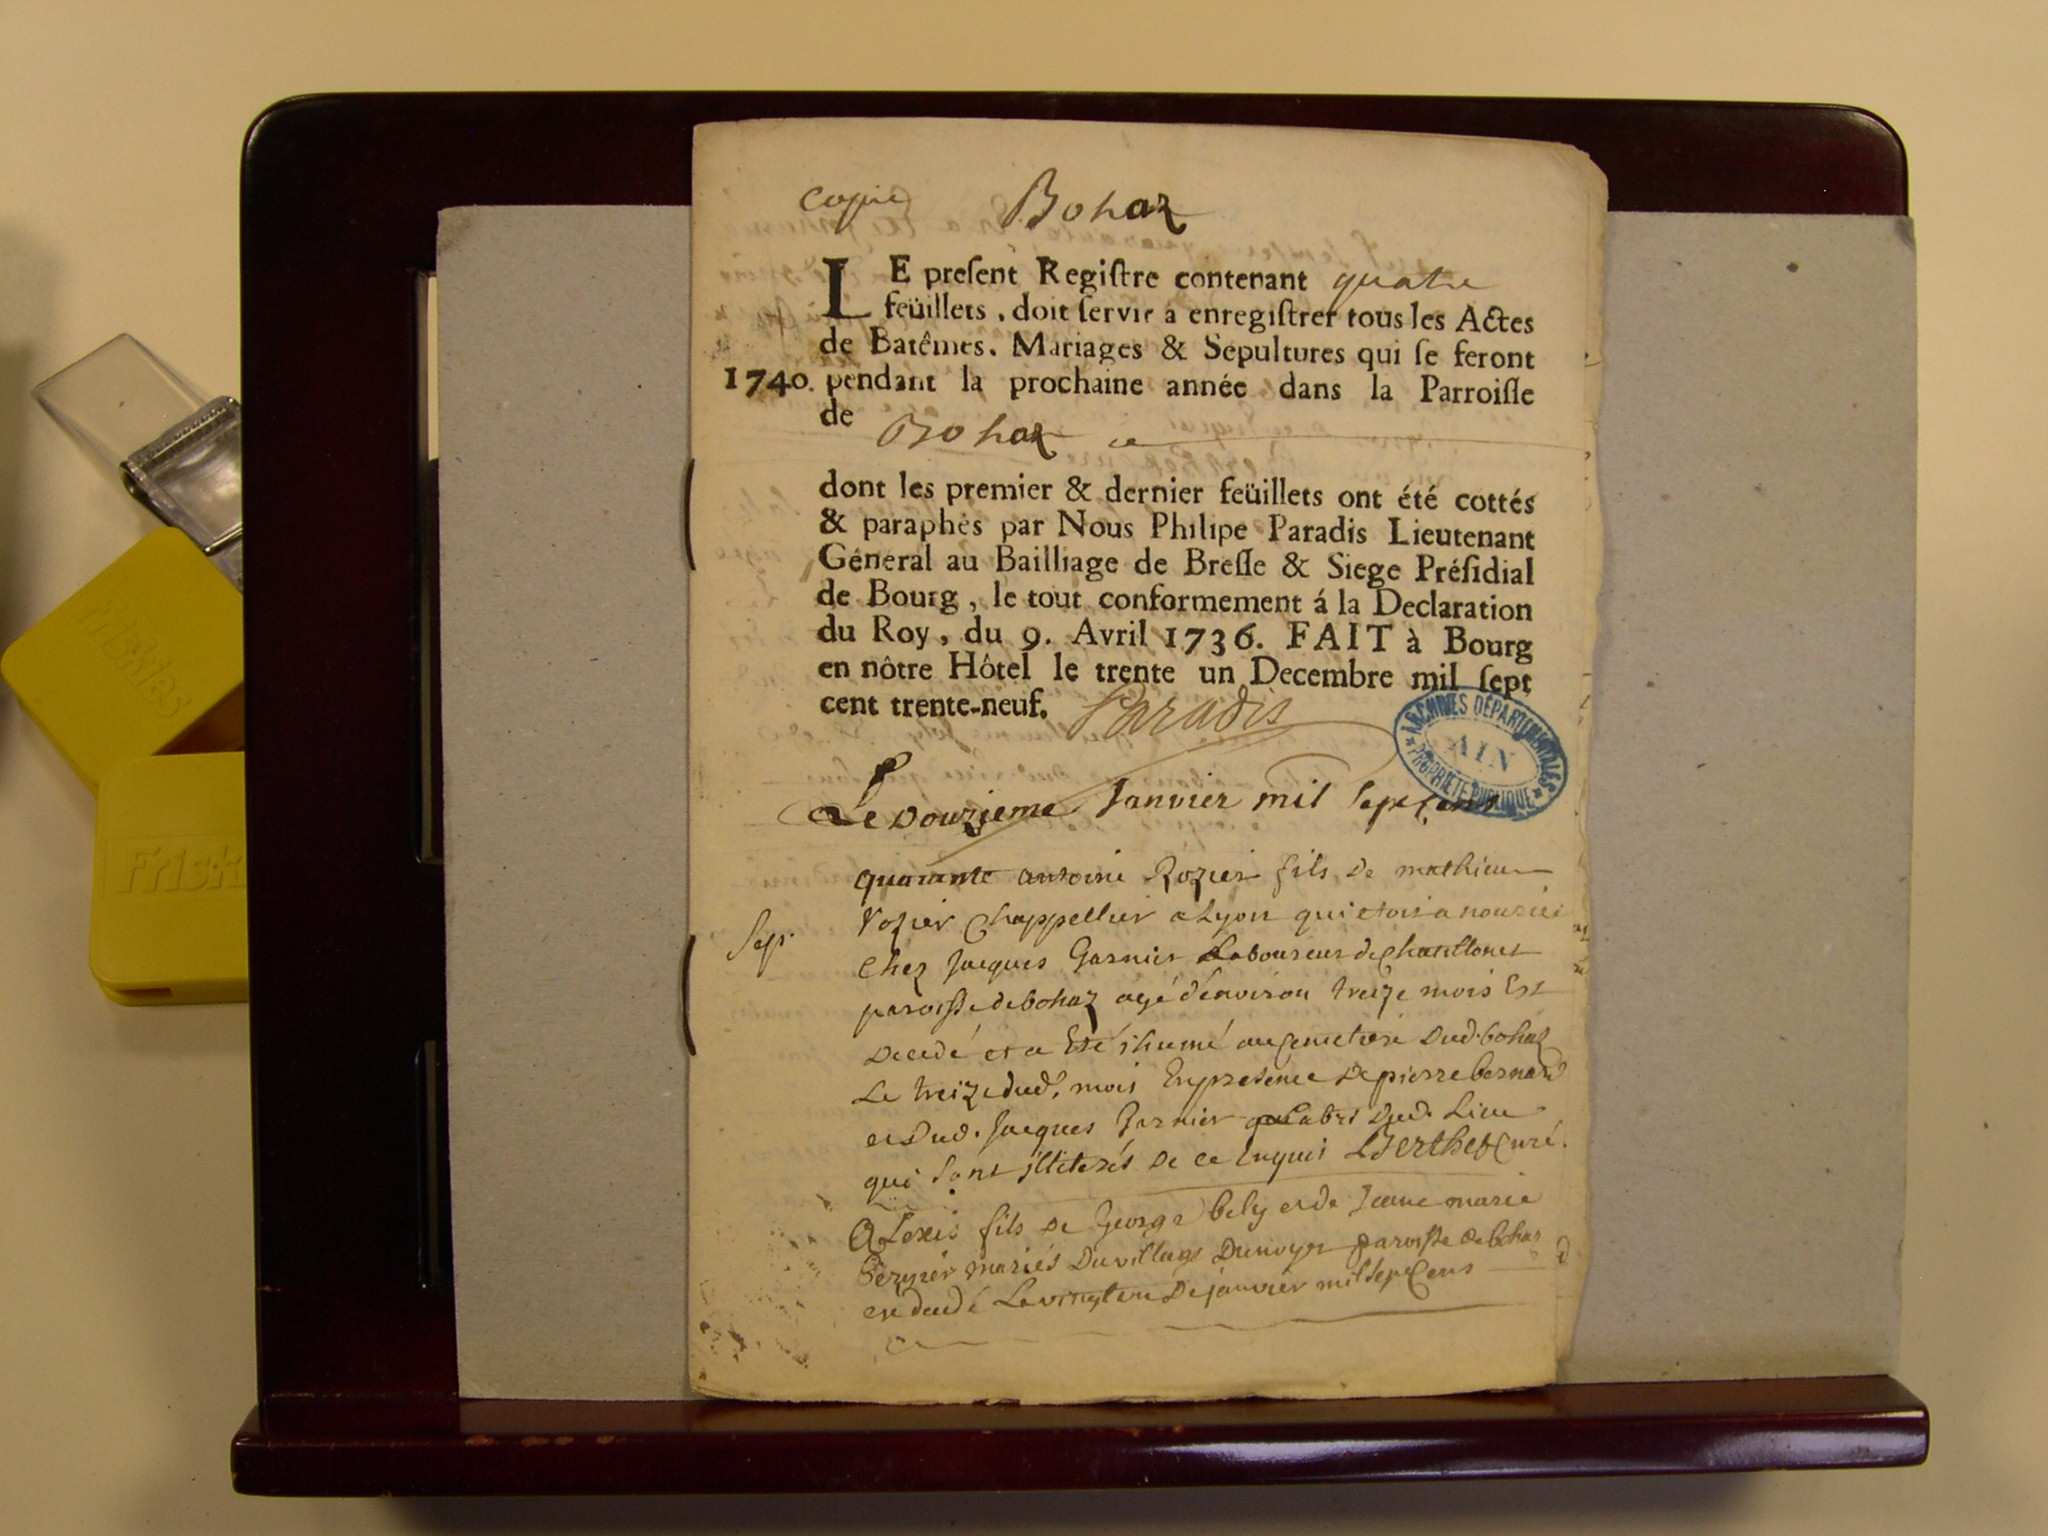 Copie Bohaz
LE preſent Regiſtre contenant quatre
feüillets, doit ſervir a enregiſtrer tous les Actes
de Batêmes. Mariages & Sepultures qui ſe feront
1740. pendant la prochaine année dans la Parroiſſe
de Bohaz
dont les premier & dernier feüillets ont été cottés
& paraphés par Nous Philipe Paradis Lieutenant
Géneral au Bailliage de Breſſe & Siege Préſidial
de Bourg, le tout conformement á la Declaration
du Roy, du 9. Avril 1736. FAIT à Bourg
en nôtre Hôtel le trente un Decembre mil ſept
cent trente-neuf. Paradis
ARCHIVES DÉPARTEMENTALES
AIN
PROPRIÉTÉ PUBLIQUE
Le douzieme Janvier mil sept cens
quarante antoine Rozier fils de mathieu
Rozier Chappellier a Lyon qui etoit a nourrice
Sep.
chez Jacques Garnier Laboureur de Chatillonet
paroisse de bohaz agé d'environ treize mois Est
decedé et a Eté ihumé au Cemetiere dud. bohaz
Le treize dud. mois En presence de pierre bernard
et dud. Jacques Garnier dud. Lieu
qui sont illiterés de ce Enquis Berthet Curé.
Alexis fils de George bely et de Jeanne marie
mariés du village Dunoyer paroisse de bohas
est decedé Le vingt de janvier mil sept Cens
Friskies
Frisk